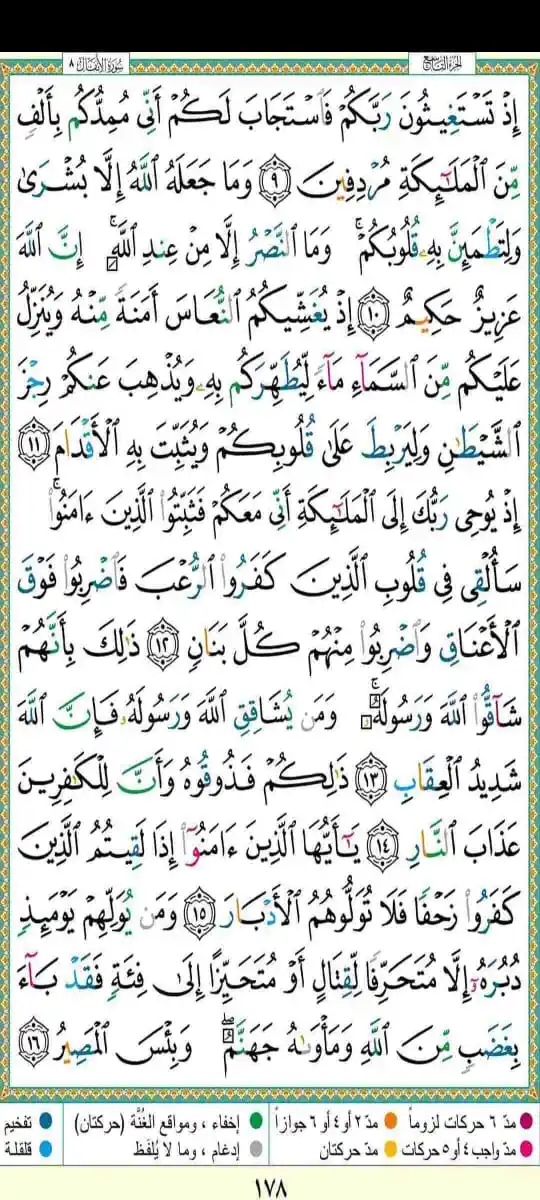 الجزء التاسع
سورة الأنفال ٨
إِذْ تَسْتَغِيثُونَ رَبَّكُمْ فَٱسْتَجَابَ لَكُمْ أَنِّى مُمِدُّكُم بِأَلْفٍ
مِّنَ ٱلْمَلَـٰٓئِكَةِ مُرْدِفِينَ ٩ وَمَا جَعَلَهُ ٱللَّهُ إِلَّا بُشْرَىٰ
وَلِتَطْمَئِنَّ بِهِۦ قُلُوبُكُمْ ۚ وَمَا ٱلنَّصْرُ إِلَّا مِنْ عِندِ ٱللَّهِ ۚ إِنَّ ٱللَّهَ
عَزِيزٌ حَكِيمٌ ١٠ إِذْ يُغَشِّيكُمُ ٱلنُّعَاسَ أَمَنَةً مِّنْهُ وَيُنَزِّلُ
عَلَيْكُم مِّنَ ٱلسَّمَآءِ مَآءً لِّيُطَهِّرَكُم بِهِۦ وَيُذْهِبَ عَنكُمْ رِجْزَ
ٱلشَّيْطَـٰنِ وَلِيَرْبِطَ عَلَىٰ قُلُوبِكُمْ وَيُثَبِّتَ بِهِ ٱلْأَقْدَامَ ١١
إِذْ يُوحِى رَبُّكَ إِلَى ٱلْمَلَـٰٓئِكَةِ أَنِّى مَعَكُمْ فَثَبِّتُوا۟ ٱلَّذِينَ ءَامَنُوا۟ ۚ
سَأُلْقِى فِى قُلُوبِ ٱلَّذِينَ كَفَرُوا۟ ٱلرُّعْبَ فَٱضْرِبُوا۟ فَوْقَ
ٱلْأَعْنَاقِ وَٱضْرِبُوا۟ مِنْهُمْ كُلَّ بَنَانٍ ١٢ ذَٰلِكَ بِأَنَّهُمْ
شَآقُّوا۟ ٱللَّهَ وَرَسُولَهُۥ ۚ وَمَن يُشَاقِقِ ٱللَّهَ وَرَسُولَهُۥ فَإِنَّ ٱللَّهَ
شَدِيدُ ٱلْعِقَابِ ١٣ ذَٰلِكُمْ فَذُوقُوهُ وَأَنَّ لِلْكَـٰفِرِينَ
عَذَابَ ٱلنَّارِ ١٤ يَـٰٓأَيُّهَا ٱلَّذِينَ ءَامَنُوٓا۟ إِذَا لَقِيتُمُ ٱلَّذِينَ
كَفَرُوا۟ زَحْفًا فَلَا تُوَلُّوهُمُ ٱلْأَدْبَارَ ١٥ وَمَن يُوَلِّهِمْ يَوْمَئِذٍ
دُبُرَهُۥٓ إِلَّا مُتَحَرِّفًا لِّقِتَالٍ أَوْ مُتَحَيِّزًا إِلَىٰ فِئَةٍ فَقَدْ بَآءَ
بِغَضَبٍ مِّنَ ٱللَّهِ وَمَأْوَىٰهُ جَهَنَّمُ ۖ وَبِئْسَ ٱلْمَصِيرُ ١٦
مدّ ٦ حركات لزوماً مدّ ٢ أو ٤ أو ٦ جوازاً إخفاء ، ومواقع الغُنَّة (حركتان) تفخيم
مدّ واجب ٤ أو ٥ حركات مدّ حركتان إدغام ، وما لا يُلفَظ قلقلة
١٧٨